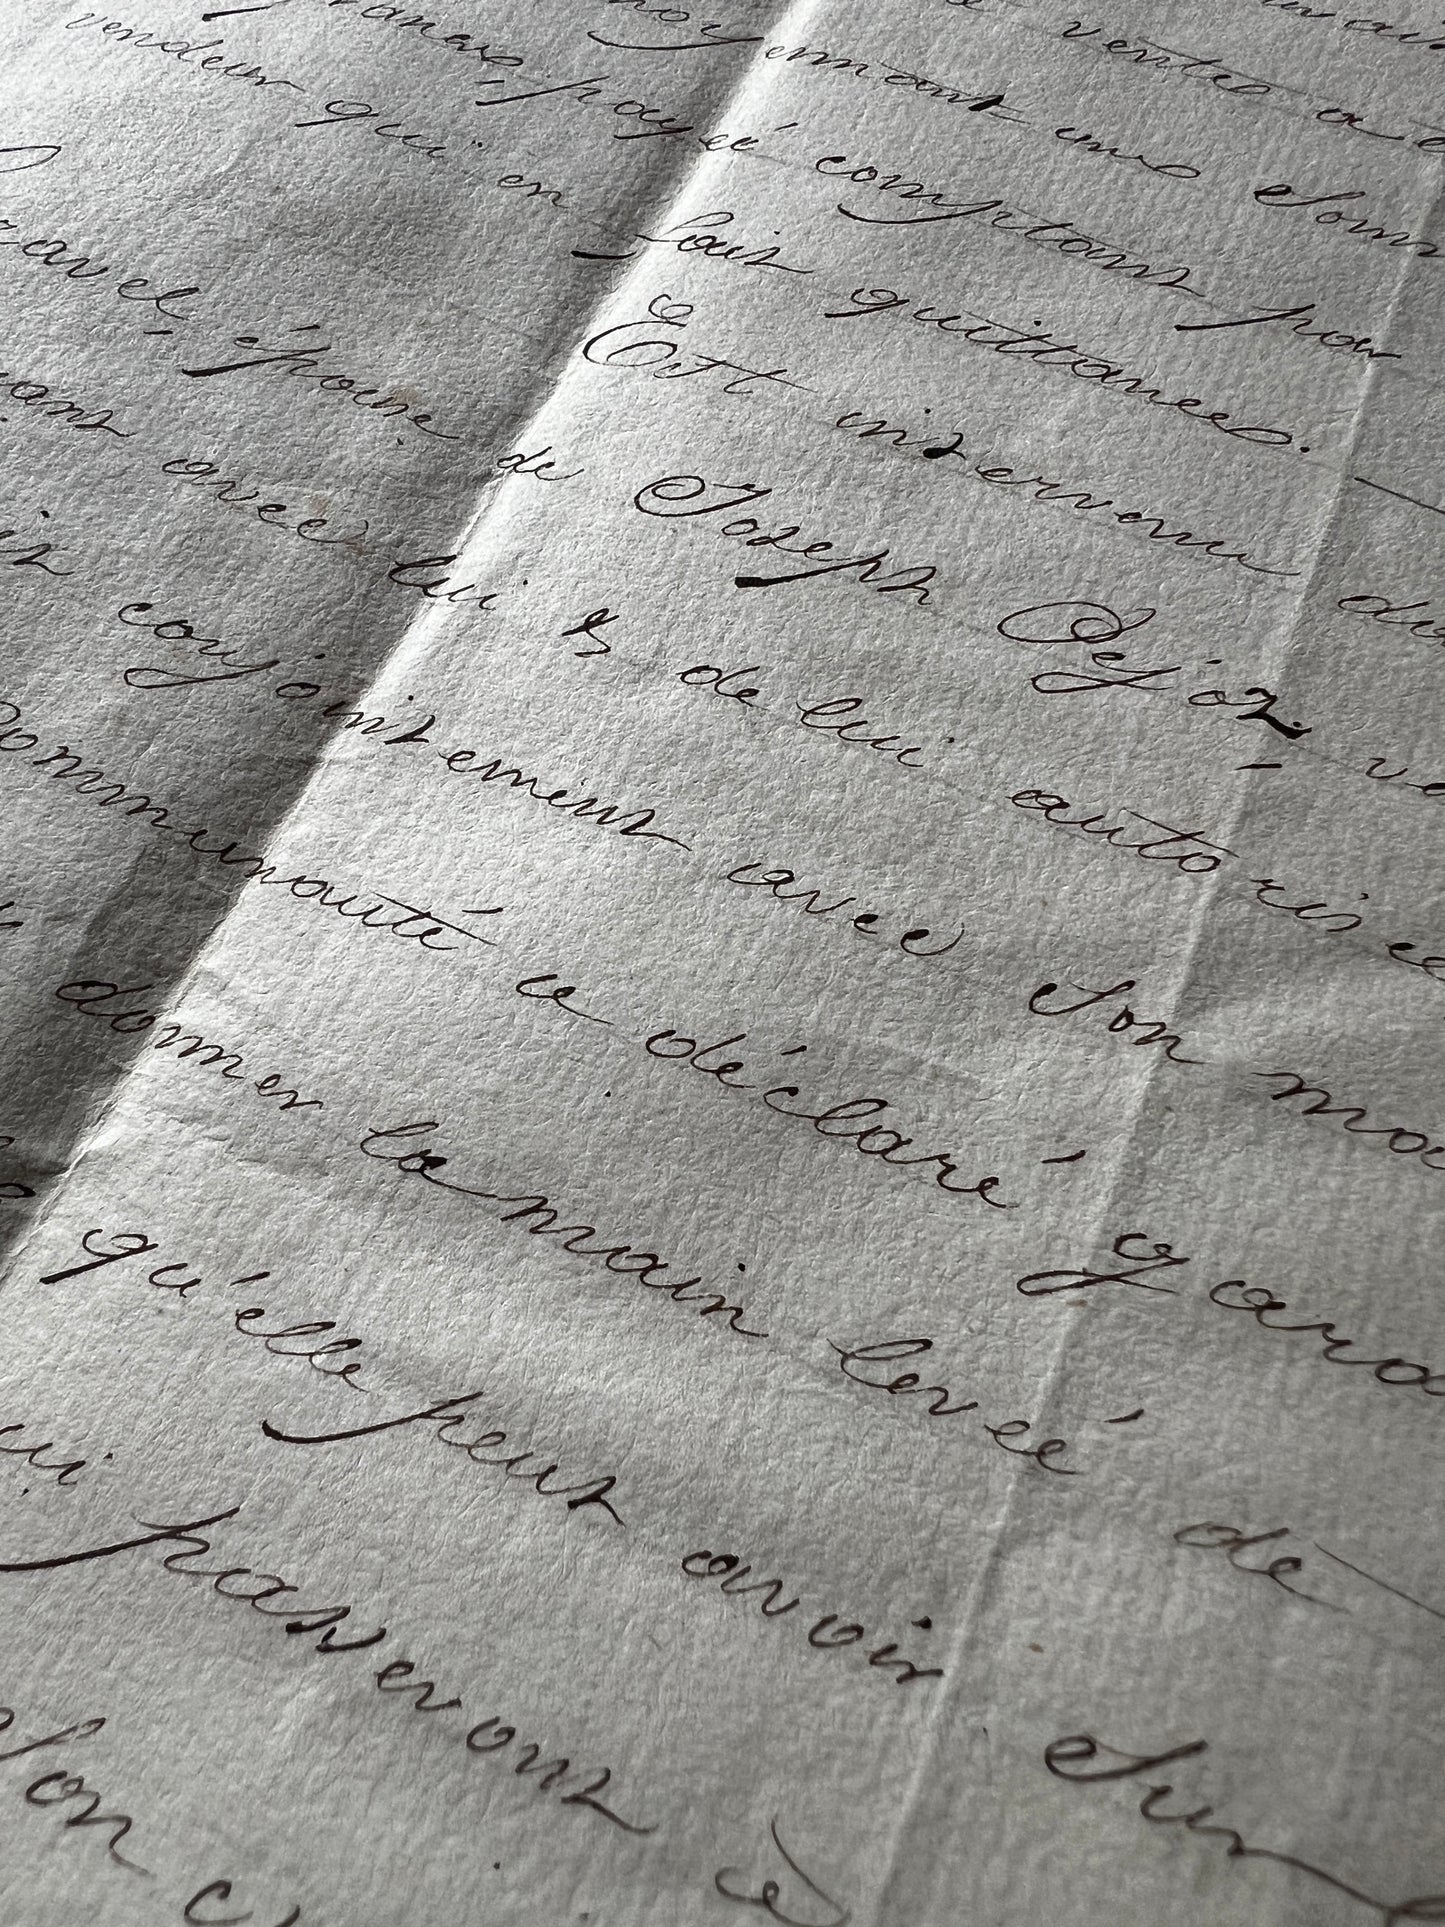 vente a
moyennant une Som
francs, payée comptant par
vendeur qui en fait quittance.
Est intervenu
avel, épouse de Joseph Pejot
avec lui & de lui autorisé
conjointement avec Son ma
Communauté a déclaré gara
donner la main levée de
qu'elle peut avoir Sur
ui passeront à
Son